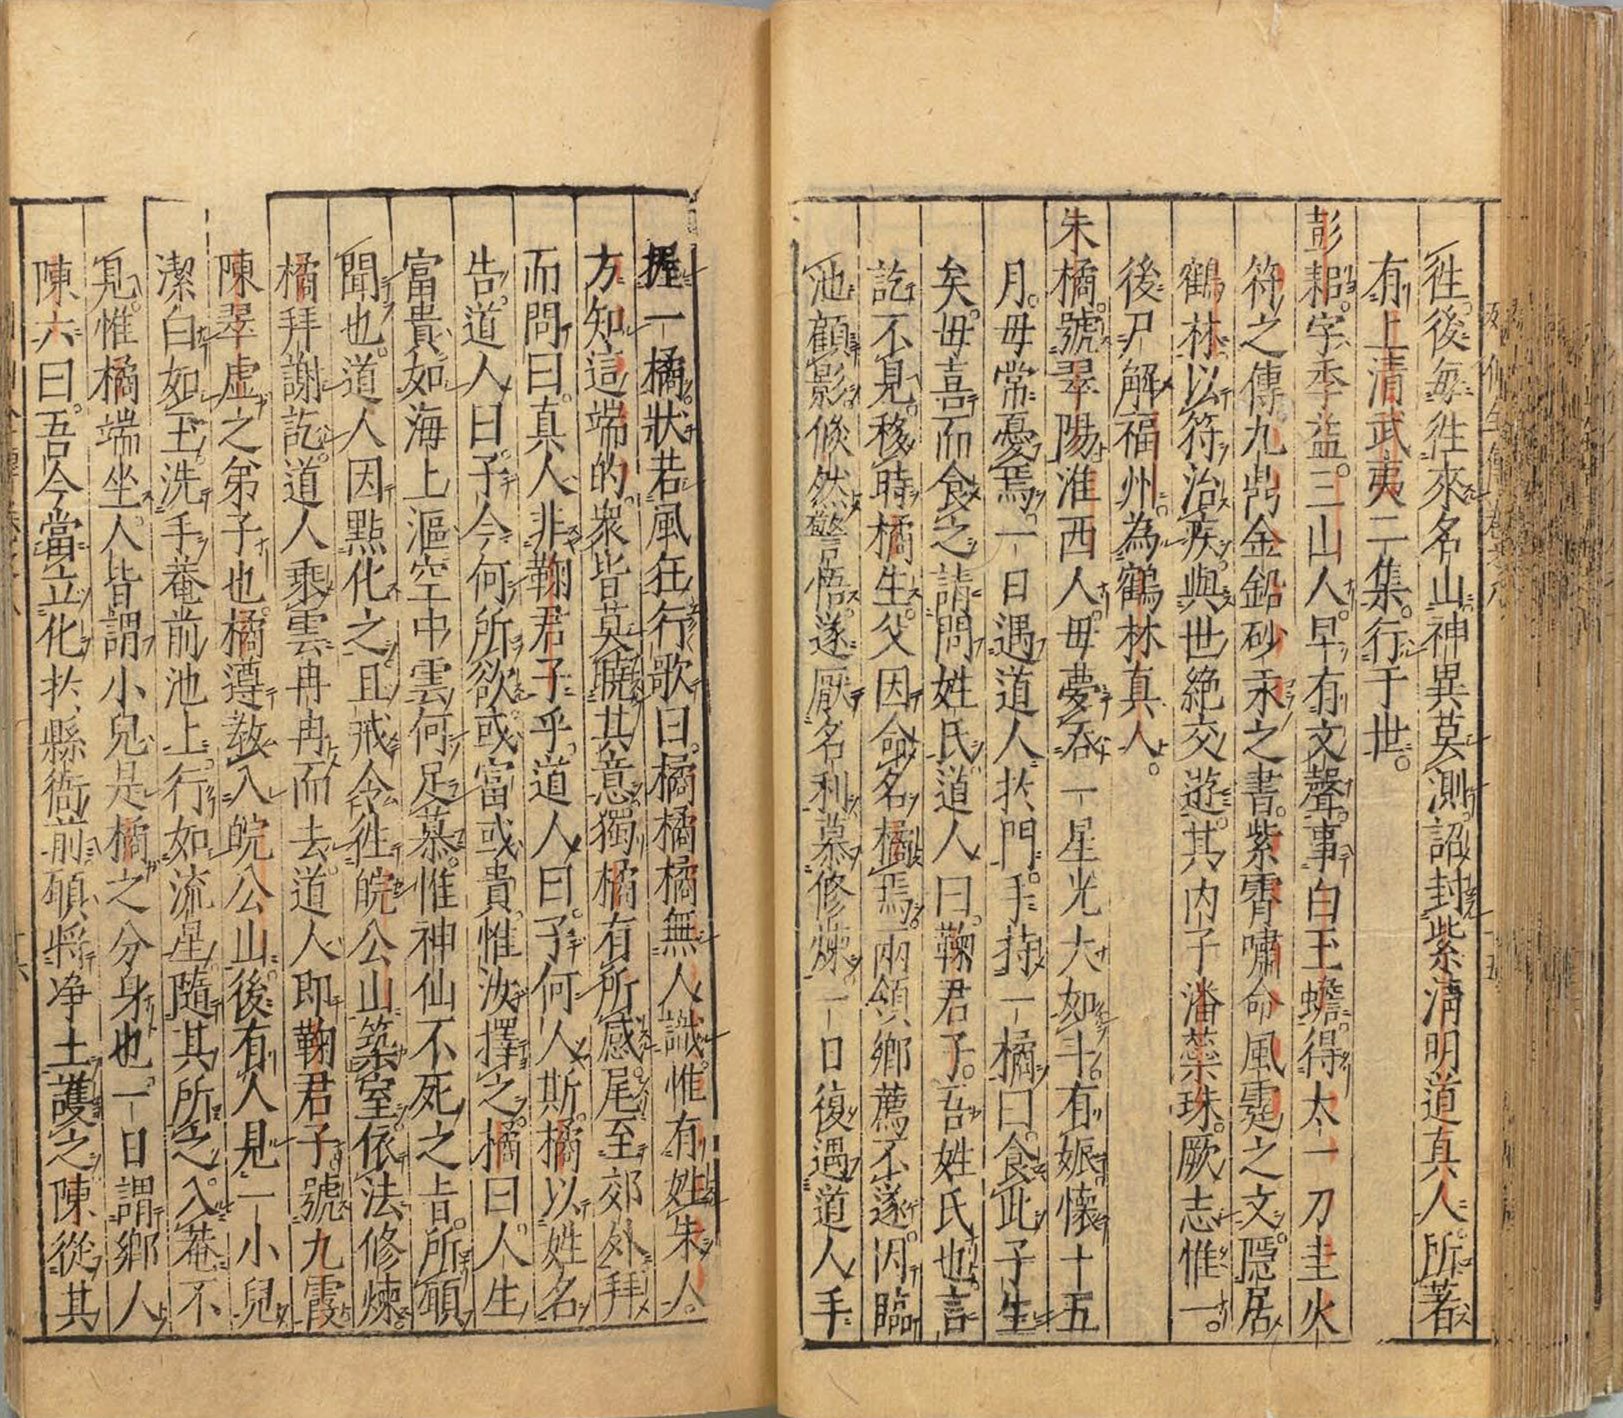 徃後每徃來名山神異莫測詔封紫清明道真人所著
有上清武夷二集行于世
彭耜字季益三山人早有文聲事白玉蟾得太一刀圭火
符之傳九鼎金鉛砂汞之書紫霄嘯命風霆之文隱居
鶴林以符治疾與世絶交遊其内子潘蘂珠厥志惟一
後尸解福州為鶴林真人
朱橘號翠陽淮西人毋夢吞一星光大如斗有娠懷十五
月毋常憂焉一日遇道人扵門手持一橘曰食此子生
矣毋喜而食之請問姓氏道人曰鞠君子吾姓氏也言
訖不見移時橘生父因命名橘焉兩領鄉薦不遂因臨
池顧影倐然警悟遂厭名利慕修煉一日復遇道人手
握一橘狀若風狂行歌曰橘橘橘無人識惟有姓朱人
方知這端的衆皆莫曉其意獨橘有所感尾至郊外拜
而問曰真人非鞠君子乎道人曰子何人斯橘以姓名
告道人曰子今何所欲或富或貴惟汝擇之橘曰人生
富貴如海上漚空中雲何足慕惟神仙不死之旨所頋
聞也道人因點化之且戒令徃皖公山築室依法修煉
橘拜謝訖道人乘雲冉冉而去道人即鞠君子號九霞
陳翠虚之弟子也橘遵教入皖公山後有人見一小兒
潔白如玉洗手菴前池上行如流星隨其所之入菴不
見惟橘端坐人皆謂小兒是橘之分身也一日謂鄉人
陳六曰吾今當立化扵縣衙前頋將净土護之陳從其